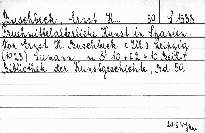 Buschbeck, Ernst H. 50 S 1538
Frühmittelalterliche Kunst in Spanien.
Von Ernst H. Buschbeck (Ill.) Leipzig
(1923) Seemann. 8° 10 + 62 + 10
Bibliothek der Kunstgeschichte, Bd 50.